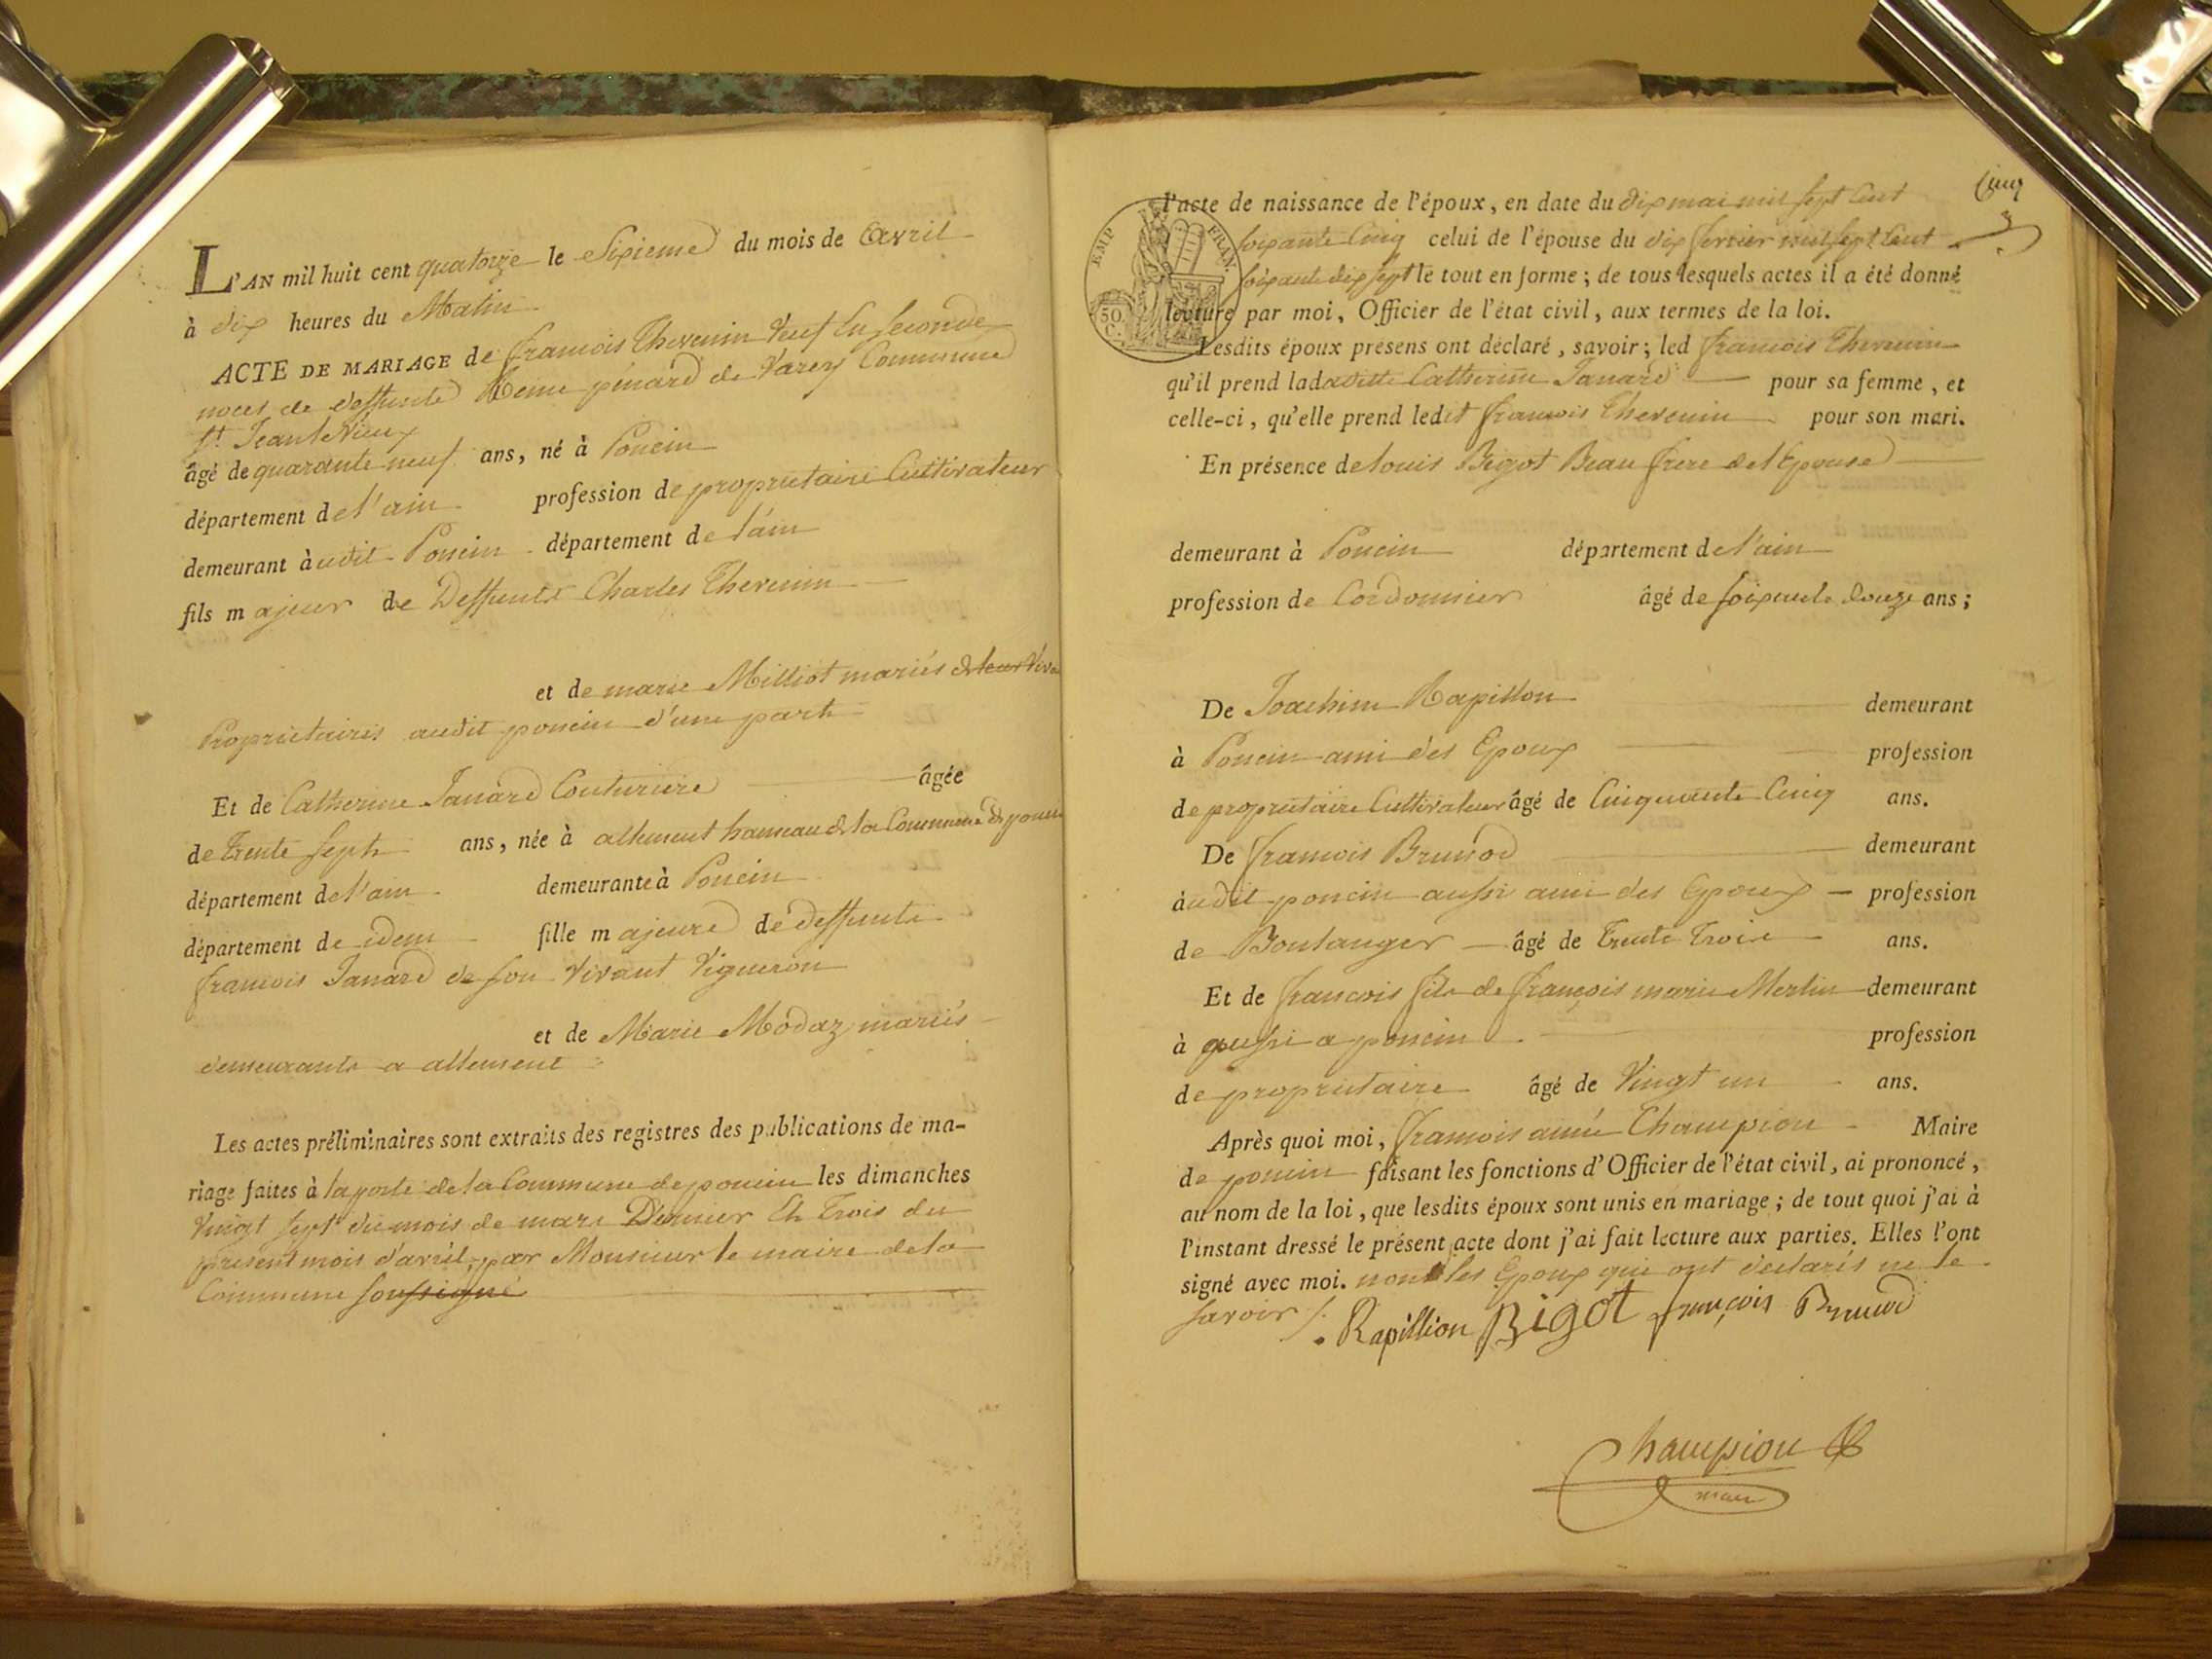 L'AN mil huit cent quatorze le Sixieme du mois de Avril
à dix heures du Matin
ACTE DE MARIAGE de francois Thevenin Veuf En Seconde
noces de deffunte Reine pénard de Varey Commune
St Jean le Vieux
âgé de quarante neuf ans, né à Poncin
département de l'ain profession de proprietaire Cultivateur
demeurant à udit Poncin département de l'ain
fils majeur de Deffunts Charles Thevenin
et de marie Milliot mariés de leur Viva
Proprietaires audit poncin d'une part
Et de Catherine Janard Couturiere âgée
de Trente Sept ans, née à allement hameau de la Commune de ponci
département de l'ain demeurante à Poncin
département de idem fille majeure de deffunts
francois Janard de son Vivant Vigneron
et de Marie Modaz mariés
demeurants a allement
Les actes préliminaires sont extraits des registres des publications de ma-
riage faites à la porte de la Commune de poncin les dimanches
Vingt Sept du mois de mars Dernier Et Trois du
present mois d'avril, par Monsieur le maire de la
Commune soussigné
Cinq
l'acte de naissance de l'époux, en date du dix mai mil sept Cent
soixante Cinq celui de l'épouse du dix fevrier mil sept Cent
soixante dix sept le tout en forme; de tous lesquels actes il a été donné
lecture par moi, Officier de l'état civil, aux termes de la loi.
EMP. FRAN.
50. C.
Lesdits époux présens ont déclaré, savoir; led francois Thevenin
qu'il prend lad Catherine Janard pour sa femme, et
celle-ci, qu'elle prend ledit francois Thevenin pour son mari.
En présence de louis Bigot Beau frere de l'Epouse
demeurant à Poncin département de l'ain
profession de Cordonnier âgé de soixante douze ans;
De Joachim Rapillon demeurant
à Poncin ami des Epoux profession
de proprietaire Cultivateur âgé de Cinquante Cinq ans.
De francois Brunod demeurant
à udit poncin aussi ami des Epoux profession
de Boulanger âgé de Trente Trois ans.
Et de francois fils de françois marie Merlin demeurant
à aussi a poncin profession
de proprietaire âgé de Vingt un ans.
Après quoi moi, francois aimé Champion Maire
de poncin faisant les fonctions d'Officier de l'état civil, ai prononcé,
au nom de la loi, que lesdits époux sont unis en mariage; de tout quoi j'ai à
l'instant dressé le présent acte dont j'ai fait lecture aux parties. Elles l'ont
signé avec moi. non les Epoux qui ont declarés ne le
savoir /.
Rapillion BIGOT françois Brunod
Champion
maire